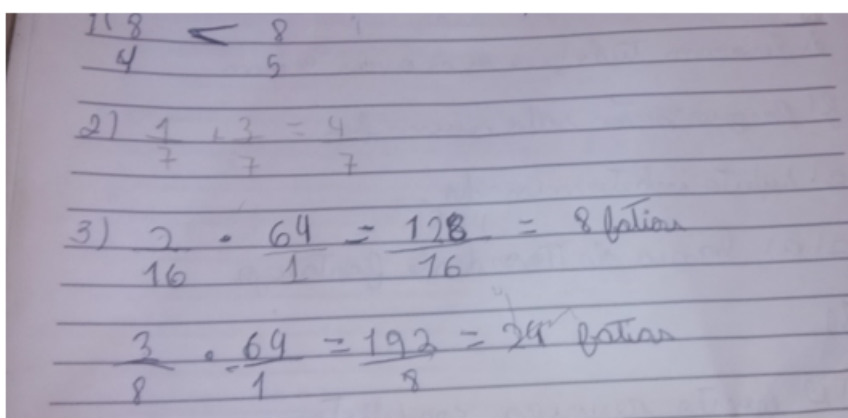 1) 8/4 < 8/5
2) 1/7 + 3/7 = 4/7
3) 2/16 · 64/1 = 128/16 = 8 fatias
3/8 · 64/1 = 192/8 = 24 fatias